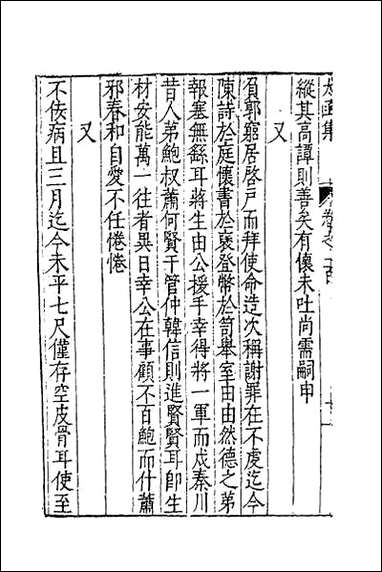 太函集
卷之一百
縱其高譚則善矣有懷未吐尚需嗣申
又
負郭窮居啓戸而拜使命造次稱謝罪在不虔迄今
陳詩於庭懷書於袠登幣於笥舉室由由然德之第
報塞無繇耳將生由公援手幸得將一軍而戍秦川
昔人弟鮑叔蕭何賢于管仲韓信則進賢賢耳即生
材安能萬一往者異日幸公在事顧不百鮑而什蕭
邪春和自愛不任惓惓
又
不佞病且三月迄今未平七尺僅存空皮骨耳使至